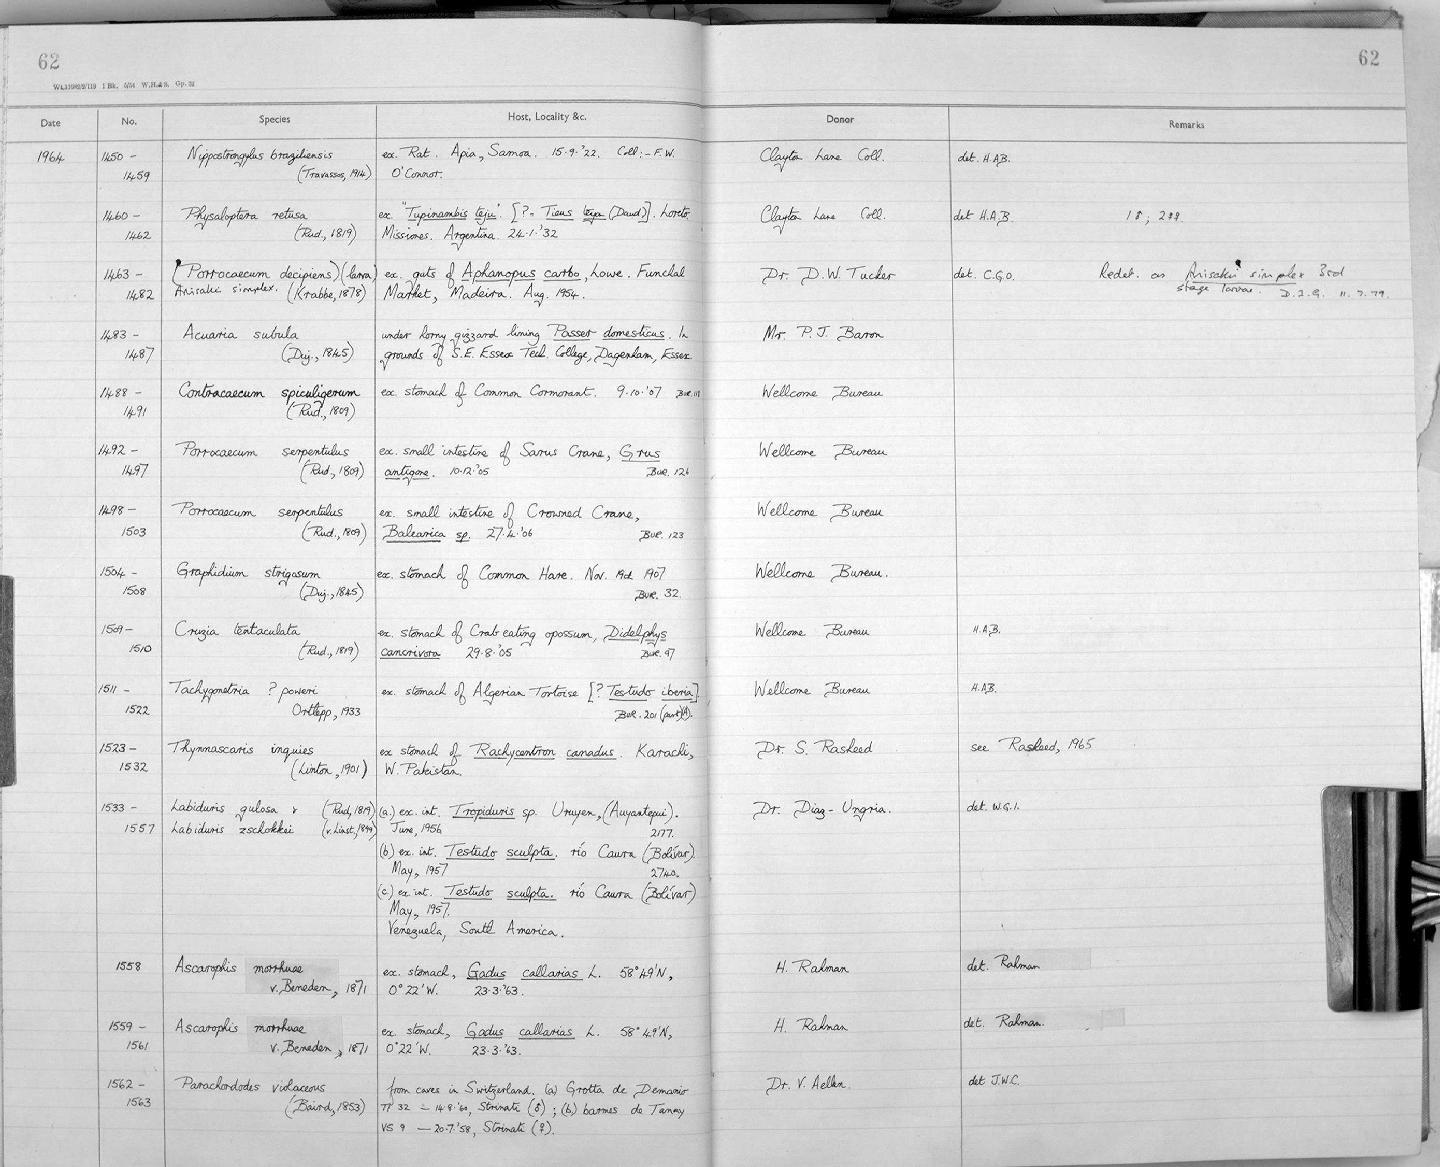 62 62
Wt.11982/2/113 1 Bk. 5/54 W.H.&S. Gp. 32
Date No. Species Host, Locality &c. Donor Remarks
1964 1450 – Nippostrongylus braziliensis ex. Rat. Apia, Samoa. 15·9·'22. Coll:– F.W. Clayton Lane Coll. det. H.A.B.
1459 (Travassos, 1914) O'Connor.
1460 – Physaloptera retusa ex "Tupinambis teju". [?= Tieus teyu (Daud)]. Loreto. Clayton Lane Coll. det H.A.B. 1♂; 2♀♀
1462 (Rud., 1819) Missiones. Argentina. 24·1·'32
1463 – (Porrocaecum decipiens) (larva) ex. guts of Aphanopus carbo, Lowe. Funchal Dr. D.W. Tucker det. C.G.O. Redet. as Anisakis simplex 3rd
1482 Anisakis simplex. (Krabbe, 1878) Market, Madeira. Aug. 1954. stage larvae. D.I.G. 11.7.79.
1483 – Acuaria subula under horny gizzard lining Passer domesticus. In Mr. P.J. Baron
1487 (Duj., 1845) grounds of S.E. Essex Tech. College, Dagenham, Essex
1488 – Contracaecum spiculigerum ex stomach of Common Cormorant. 9·10·'07 Bur. 111 Wellcome Bureau
1491 (Rud., 1809)
1492 – Porrocaecum serpentulus ex. small intestine of Sarus Crane, Grus Wellcome Bureau
1497 (Rud., 1809) antigone. 10·12·'05 Bur. 126
1498 – Porrocaecum serpentulus ex. small intestine of Crowned Crane, Wellcome Bureau
1503 (Rud., 1809) Balearica sp. 27·4·'06 Bur. 123
1504 – Graphidium strigosum ex. stomach of Common Hare. Nov. 19th 1907 Wellcome Bureau.
1508 (Duj., 1845) Bur. 32.
1509 – Cruzia tentaculata ex. stomach of Crab eating opossum, Didelphys Wellcome Bureau H.A.B.
1510 (Rud., 1819) cancrivora 29·8·'05 Bur. 97
1511 – Tachygonetria ? poweri ex. stomach of Algerian Tortoise [? Testudo iberia] Wellcome Bureau H.A.B.
1522 Ortlepp, 1933 Bur. 201 (part)(A).
1523 – Thynnascaris inquies ex stomach of Rachycentron canadus. Karachi, Dr. S. Rasheed see Rasheed, 1965
1532 (Linton, 1901) W. Pakistan.
1533 – Labiduris gulosa & (Rud, 1819) (a.) ex. int. Tropiduris sp. Uruyen, (Auyantepui). Dr. Diaz-Ungria. det. W.G.I.
1557 Labiduris zschokkei (v. Linst., 1899) June, 1956 2177.
(b) ex. int. Testudo sculpta. río Caura (Bolívar).
May, 1957 2740.
(c.) ex int. Testudo sculpta. río Caura (Bolívar)
May, 1957.
Venezuela, South America.
1558 Ascarophis morrhuae ex. stomach, Gadus callarias L. 58°49'N, H. Rahman det. Rahman
v. Beneden, 1871 0°22'W. 23·3·'63.
1559 – Ascarophis morrhuae ex stomach, Gadus callarias L. 58°49'N, H. Rahman det. Rahman.
1561 v. Beneden, 1871 0°22'W. 23·3·'63.
1562 – Parachordodes violaceous from caves in Switzerland. (a) Grotta de Demanio Dr. V. Aellen. det J.W.C.
1563 (Baird, 1853) TI 32 – 14·8·'60, Strinate (♂); (b) barmes de Tanay
VS 9 – 20·7·'58, Strinate (♀).